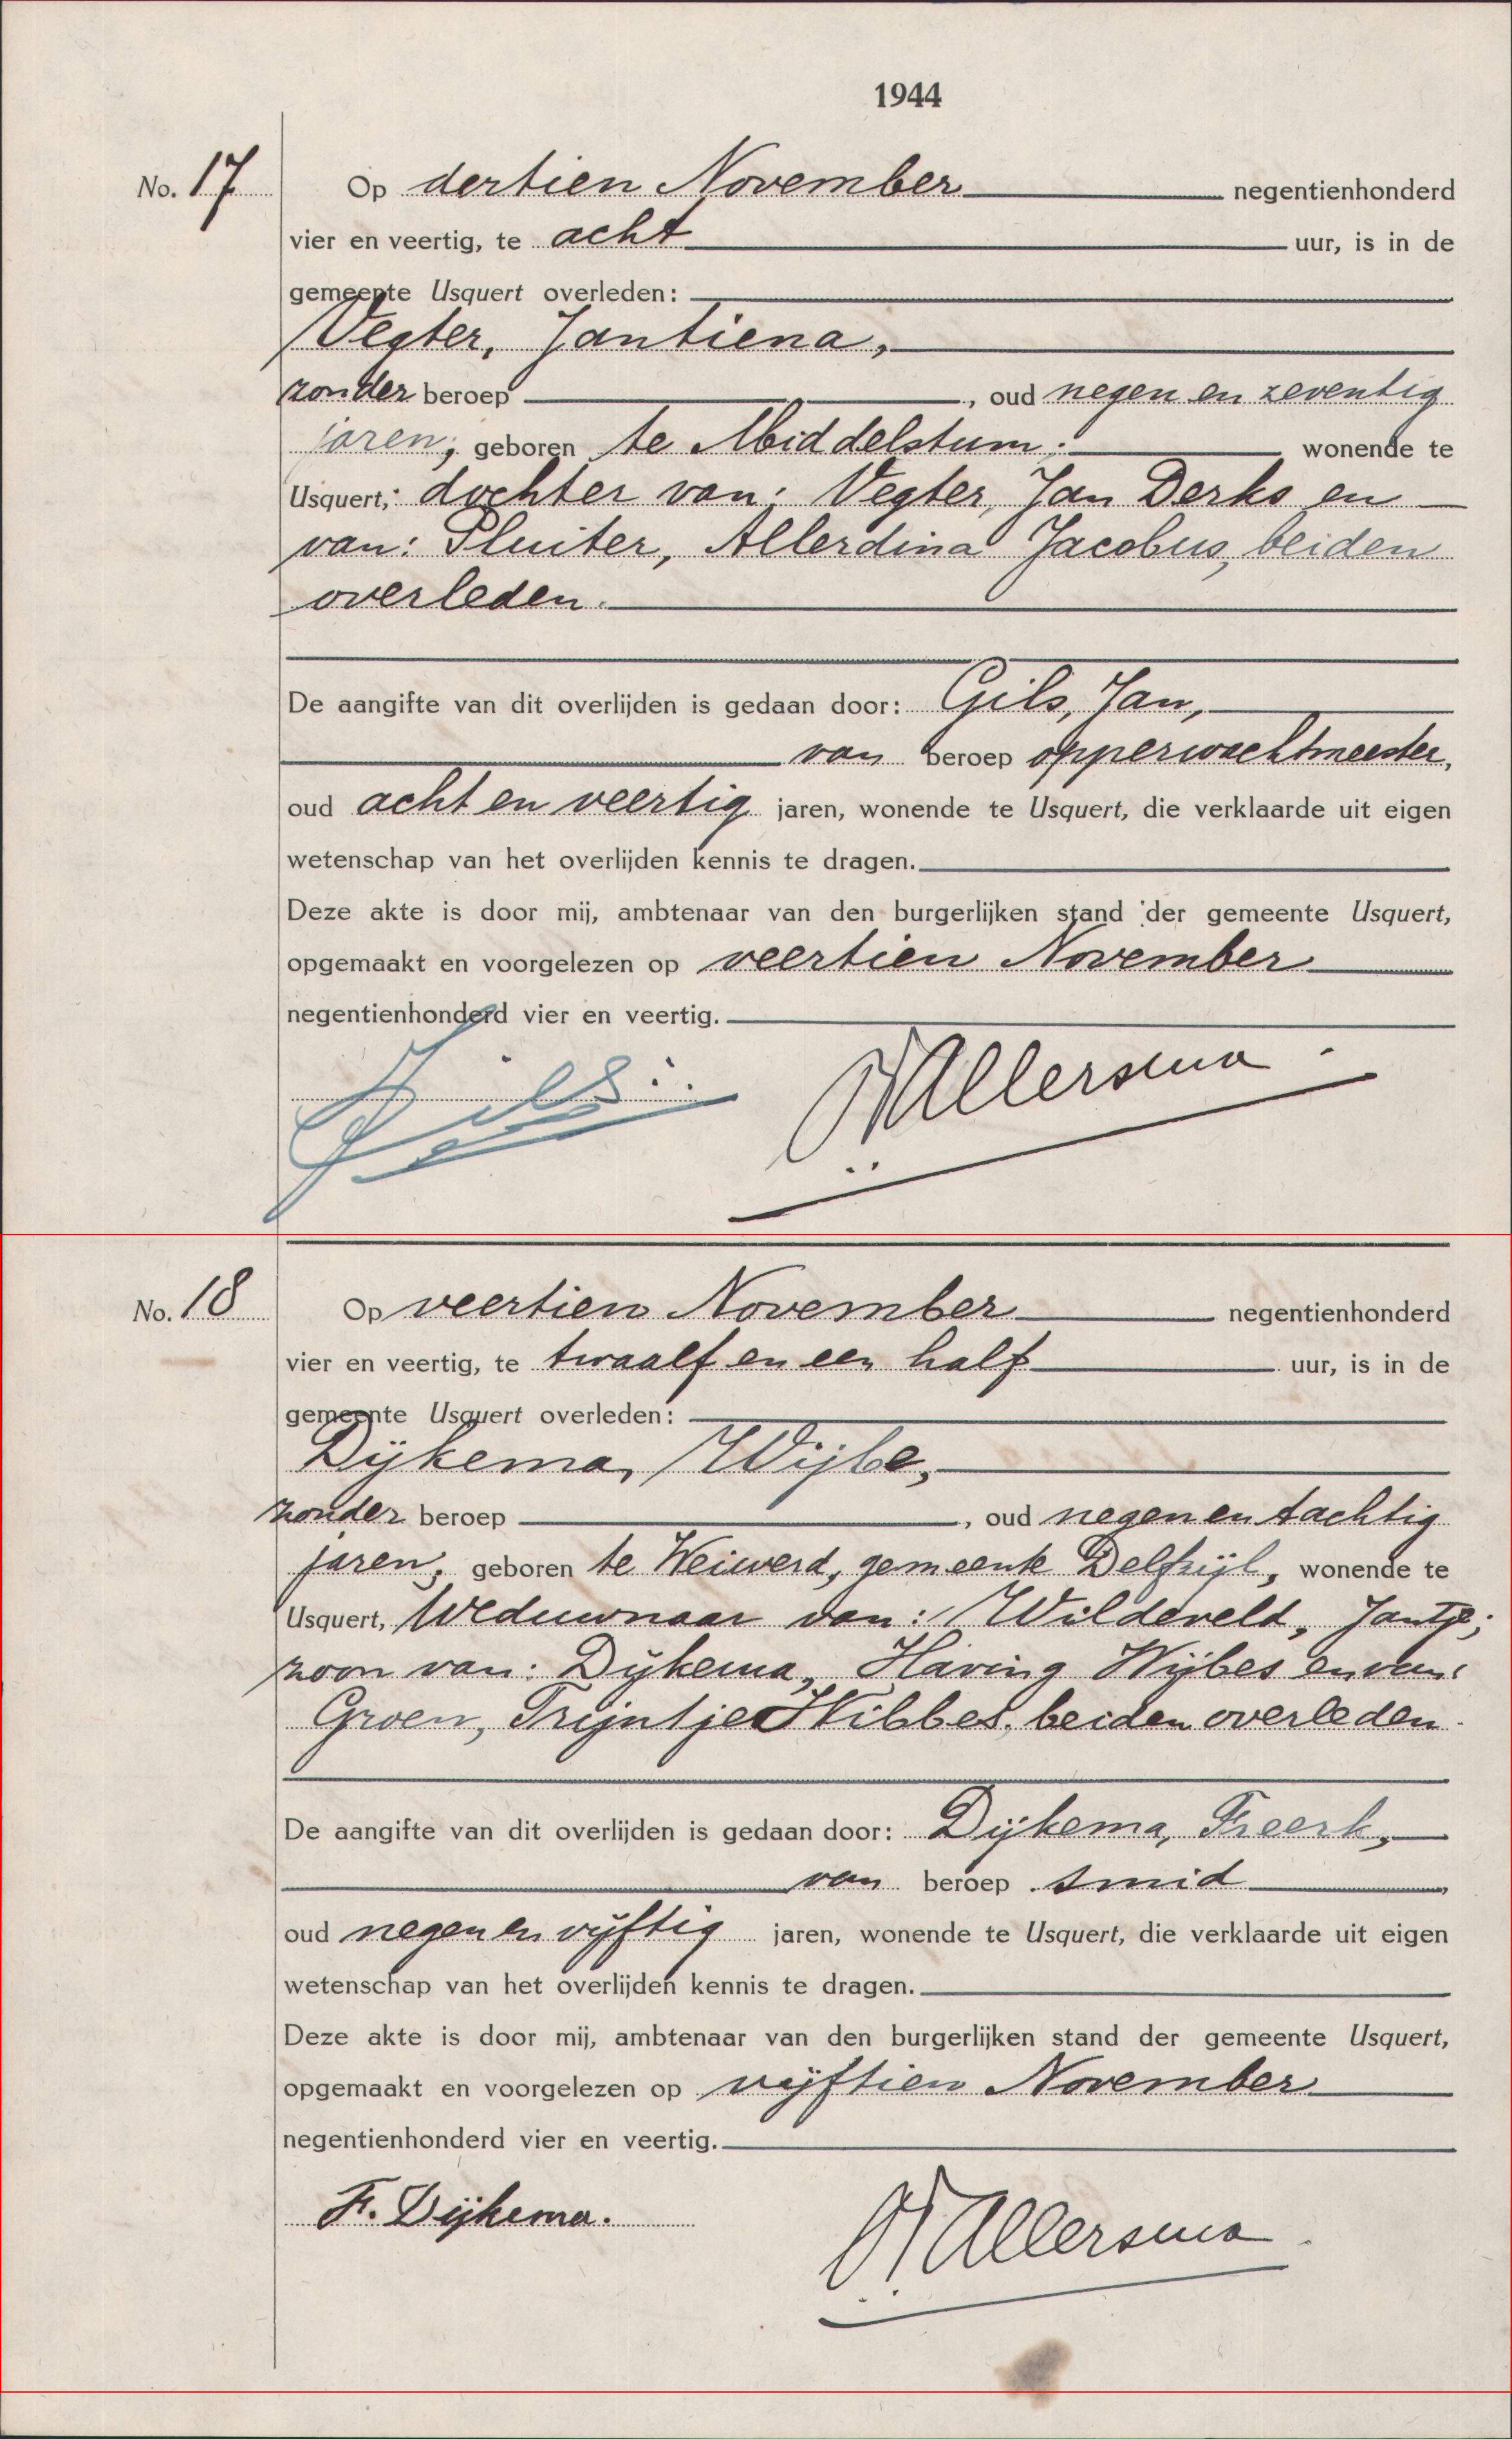 1944
No. 17 Op dertien November negentienhonderd
vier en veertig, te acht uur, is in de
gemeente Usquert overleden:
Vegter, Jantiena,
zonder beroep, oud negen en zeventig
jaren, geboren te Middelstum; wonende te
Usquert; dochter van: Vegter, Jan Derks en
van: Sluiter, Allerdina Jacobus, beiden
overleden.
De aangifte van dit overlijden is gedaan door: Gils, Jan,
van beroep opperwachtmeester,
oud acht en veertig jaren, wonende te Usquert, die verklaarde uit eigen
wetenschap van het overlijden kennis te dragen.
Deze akte is door mij, ambtenaar van den burgerlijken stand der gemeente Usquert,
opgemaakt en voorgelezen op veertien November
negentienhonderd vier en veertig.
Gils Allersma
No. 18 Op veertien November negentienhonderd
vier en veertig, te twaalf en een half uur, is in de
gemeente Usquert overleden:
Dijkema, Wijbe,
zonder beroep, oud negen en tachtig
jaren, geboren te Weiwerd, gemeente Delfzijl, wonende te
Usquert, Weduwnaar van: Wildeveld, Jantje;
zoon van: Dijkema, Haring Wijbes en van:
Groen, Trijntje Hibbes, beiden overleden.
De aangifte van dit overlijden is gedaan door: Dijkema, Freerk,
van beroep smid,
oud negen en vijftig jaren, wonende te Usquert, die verklaarde uit eigen
wetenschap van het overlijden kennis te dragen.
Deze akte is door mij, ambtenaar van den burgerlijken stand der gemeente Usquert,
opgemaakt en voorgelezen op vijftien November
negentienhonderd vier en veertig.
F. Dijkema. Allersma